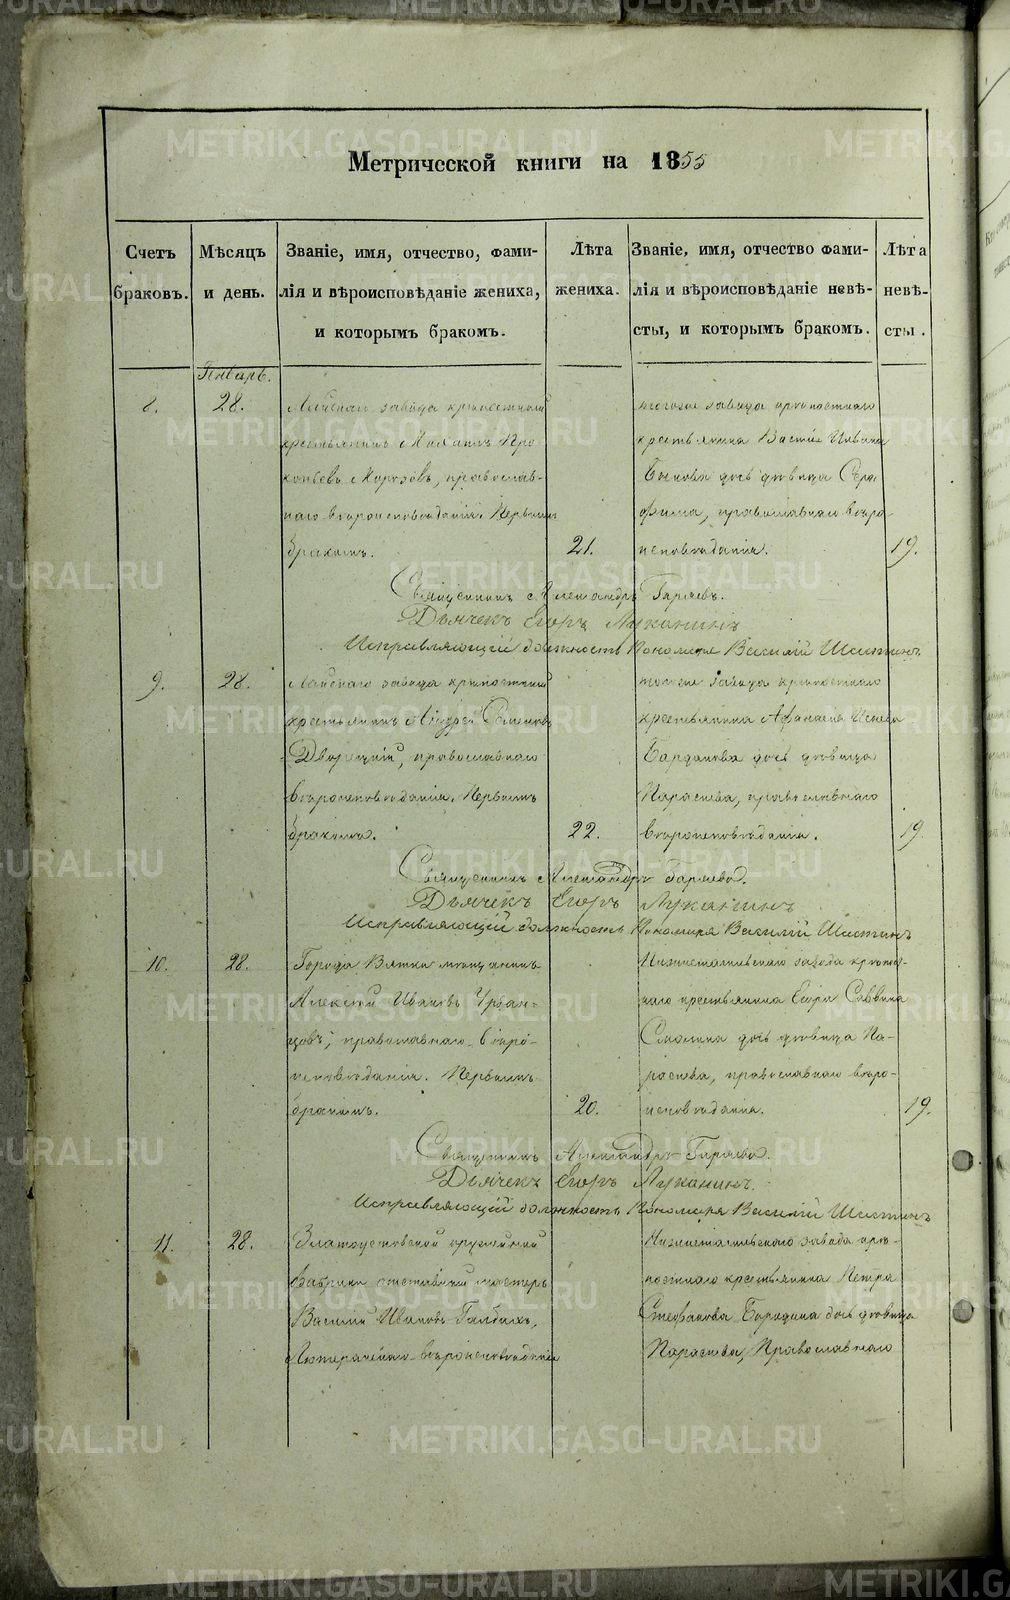 Метрической книги на 1855
Счетъ браковъ.
Мѣсяцъ и день.
Званіе, имя, отчество, фами-
лія и вѣроисповѣданіе жениха,
и которымъ бракомъ.
Лѣта жениха.
Званіе, имя, отчество фами-
лія и вѣроисповѣданіе невѣ-
сты, и которымъ бракомъ.
Лѣта невѣ-
сты.
Генварь.
8.
28.
завода крѣпостный
крестьянинъ Про-
копьевъ Морозовъ, православ-
наго вѣроисповѣданія. Первымъ
бракомъ.
21.
тогоже завода крѣпостнаго
крестьянина
Быкова дочь дѣвица Сера-
фима, православнаго вѣро
исповѣданія.
19.
Священникъ Александръ Гаряевъ.
Дьячекъ Егоръ Луканинъ
Исправляющій должность Пономаря Василій Шистинъ
9.
28.
Лайскаго завода крѣпостный
крестьянинъ Андрей Семеновъ
православнаго
вѣроисповѣданія. Первымъ
бракомъ.
22.
тогоже завода крѣпостнаго
крестьянина Афанасья
дочь дѣвица
Параскева, православнаго
вѣроисповѣданія.
19
Священникъ Александръ Гаряевъ.
Дьячекъ Егоръ Луканинъ
Исправляющій должность Пономаря Василій Шистинъ
10.
28.
Города Вятки мѣщанинъ
Алексѣй Ивановъ Уржан-
цовъ, православнаго вѣро-
исповѣданія. Первымъ
бракомъ.
20.
Нижнетагильскаго завода крѣпост-
наго крестьянина Егора Саввина
Смолина дочь дѣвица Па-
раскева, православнаго вѣро-
исповѣданія.
19.
Священникъ Александръ Гаряевъ.
Дьячекъ Егоръ Луканинъ.
Исправляющій должность Пономаря Василій Шистинъ
11.
28.
Златоустовской оружейной
фабрики отставный мастеръ
Василій Ивановъ Галбахъ,
Лютеранскаго вѣроисповѣданія
Нижнетагильскаго завода крѣ-
постнаго крестьянина Петра
Стефанова Бородина дочь дѣвица
Параскева, Православнаго
METRIKI.GASO-URAL.RU